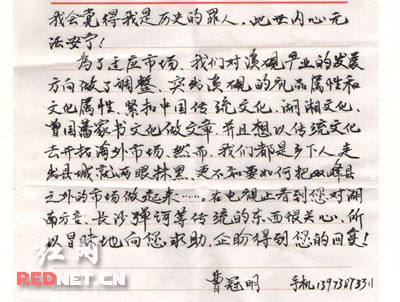 我会觉得我是历史的罪人，此世内心无
法安宁！
为了适应市场，我们对溪砚产业的发展
方向做了调整，突出溪砚的礼品属性和
文化属性，紧扣中国传统文化、湖湘文化、
曾国藩家书文化做文章，并且想以传统文化
去开拓海外市场。然而，我们都是乡下人走
出县城就两眼抹黑，更不知要如何把双峰县
之外的市场做起来……。在电视上看到您对湖
南方言、长沙弹词等传统的东西很关心，所
以冒昧地向您求助，企盼得到您的回复！
曹冠明 手机13973873311
红网
REDNET.CN